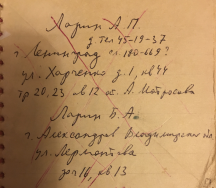 Ларин А. П.
д. тел 45-19-37
г. Ленинград
ул. Харченко д. 1, кв 44
тр. 20, 23 А. Матросова
Ларин Б. А.
г. Александров Владимирская
ул. Лермонтова
д 16, кв 13